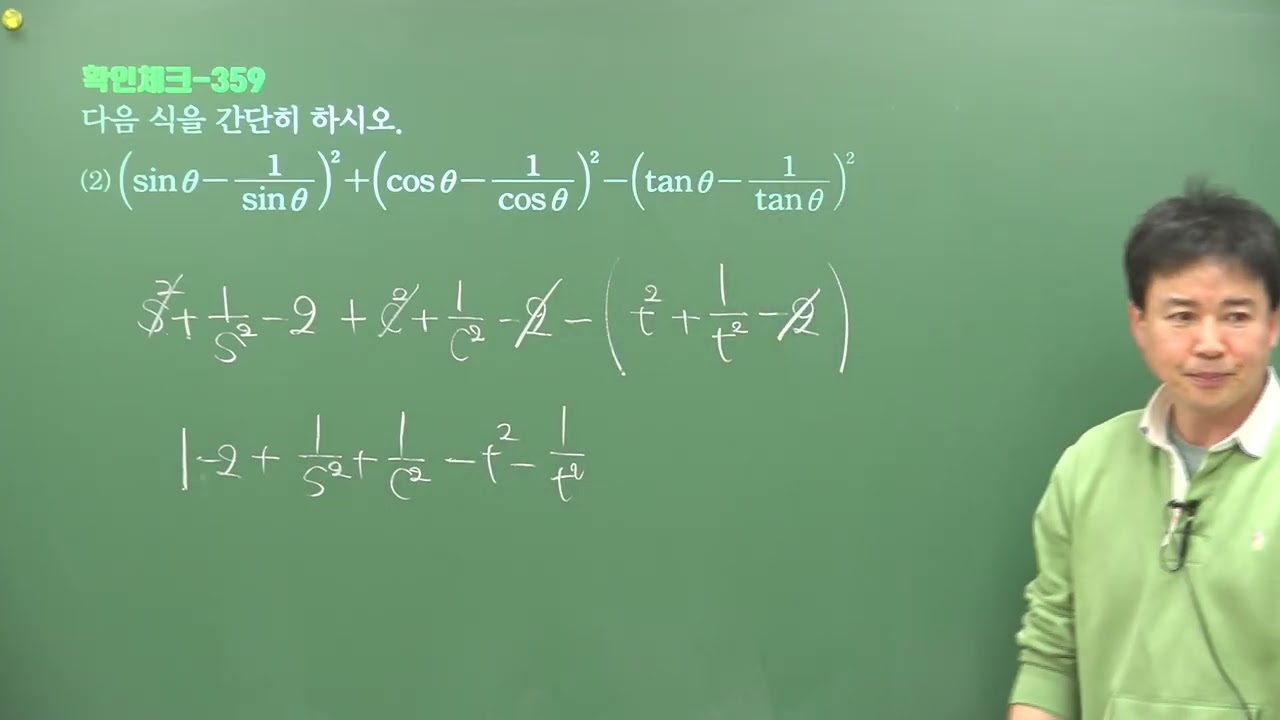 확인체크-359
다음 식을 간단히 하시오.
(2) (sinθ − 1/sinθ)² + (cosθ − 1/cosθ)² − (tanθ − 1/tanθ)²
s² + 1/s² − 2 + c² + 1/c² − 2 − (t² + 1/t² − 2)
1 − 2 + 1/s² + 1/c² − t² − 1/t²